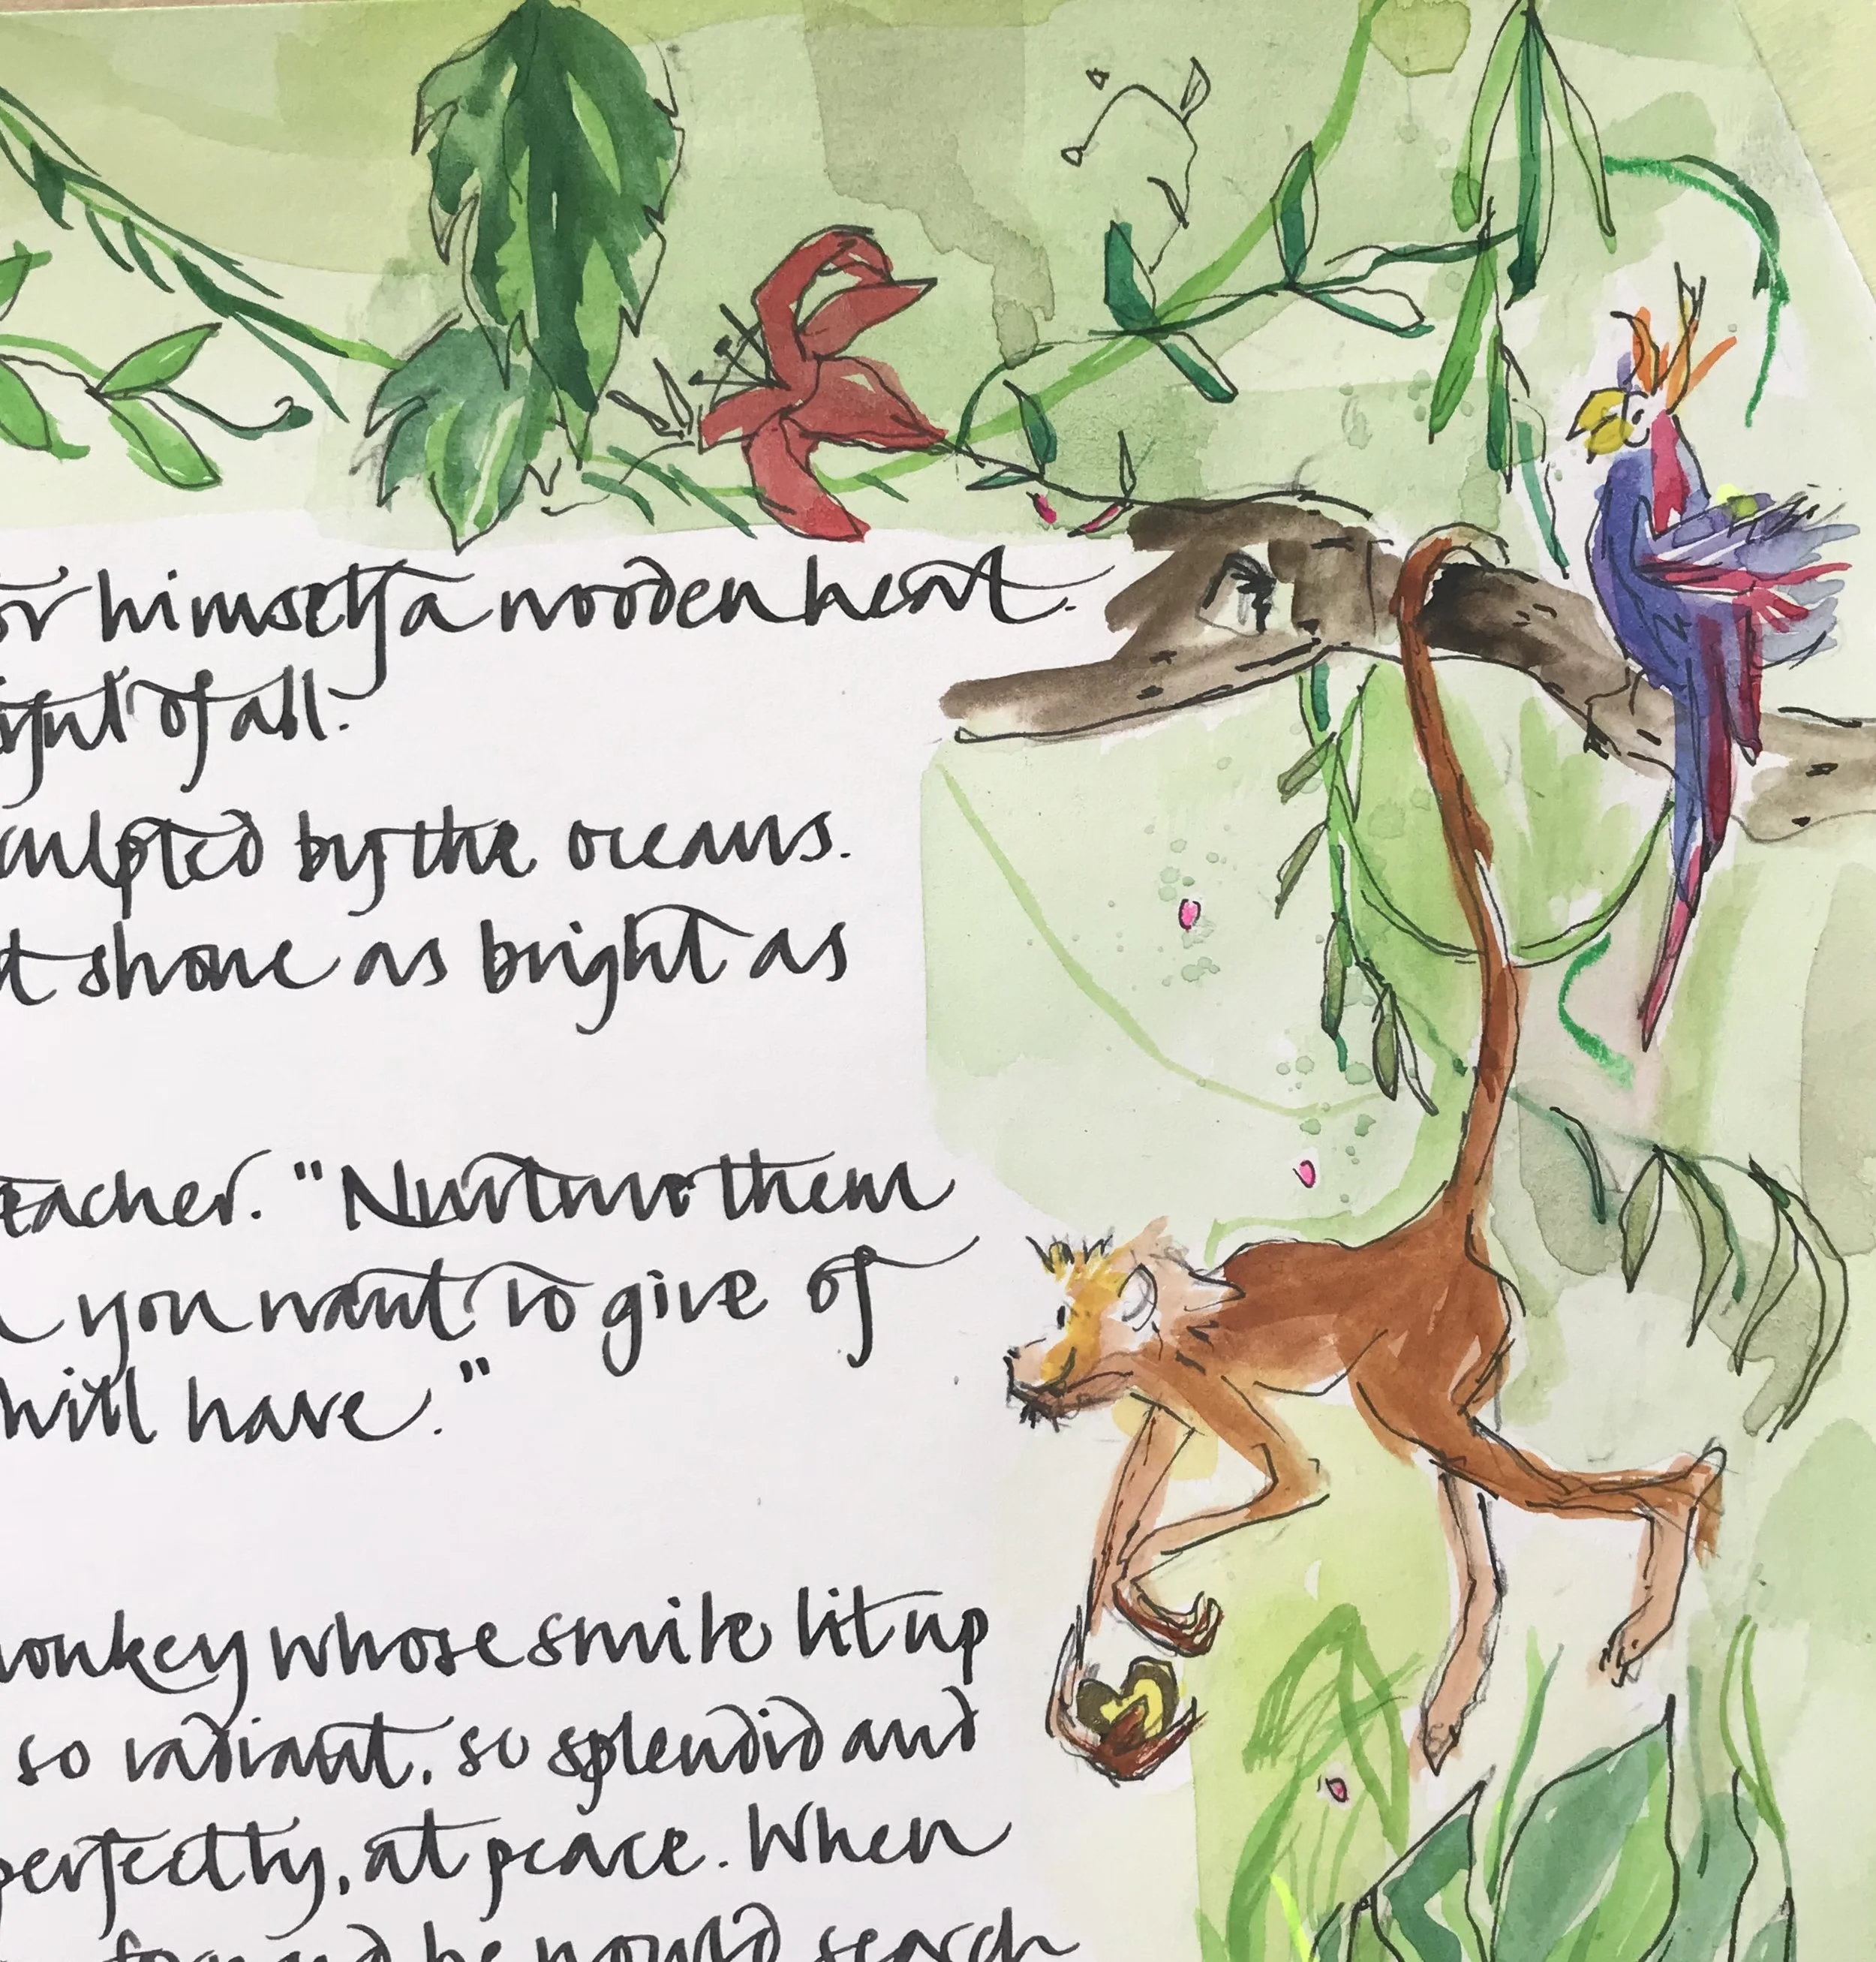 or himself a wooden heart.
ight of all.
culpted by the oceans.
t shone as bright as
eacher. "Nurture them
you want to give of
will have."
onkey whose smile lit up
so radiant, so splendid and
perfectly, at peace. When
he would search